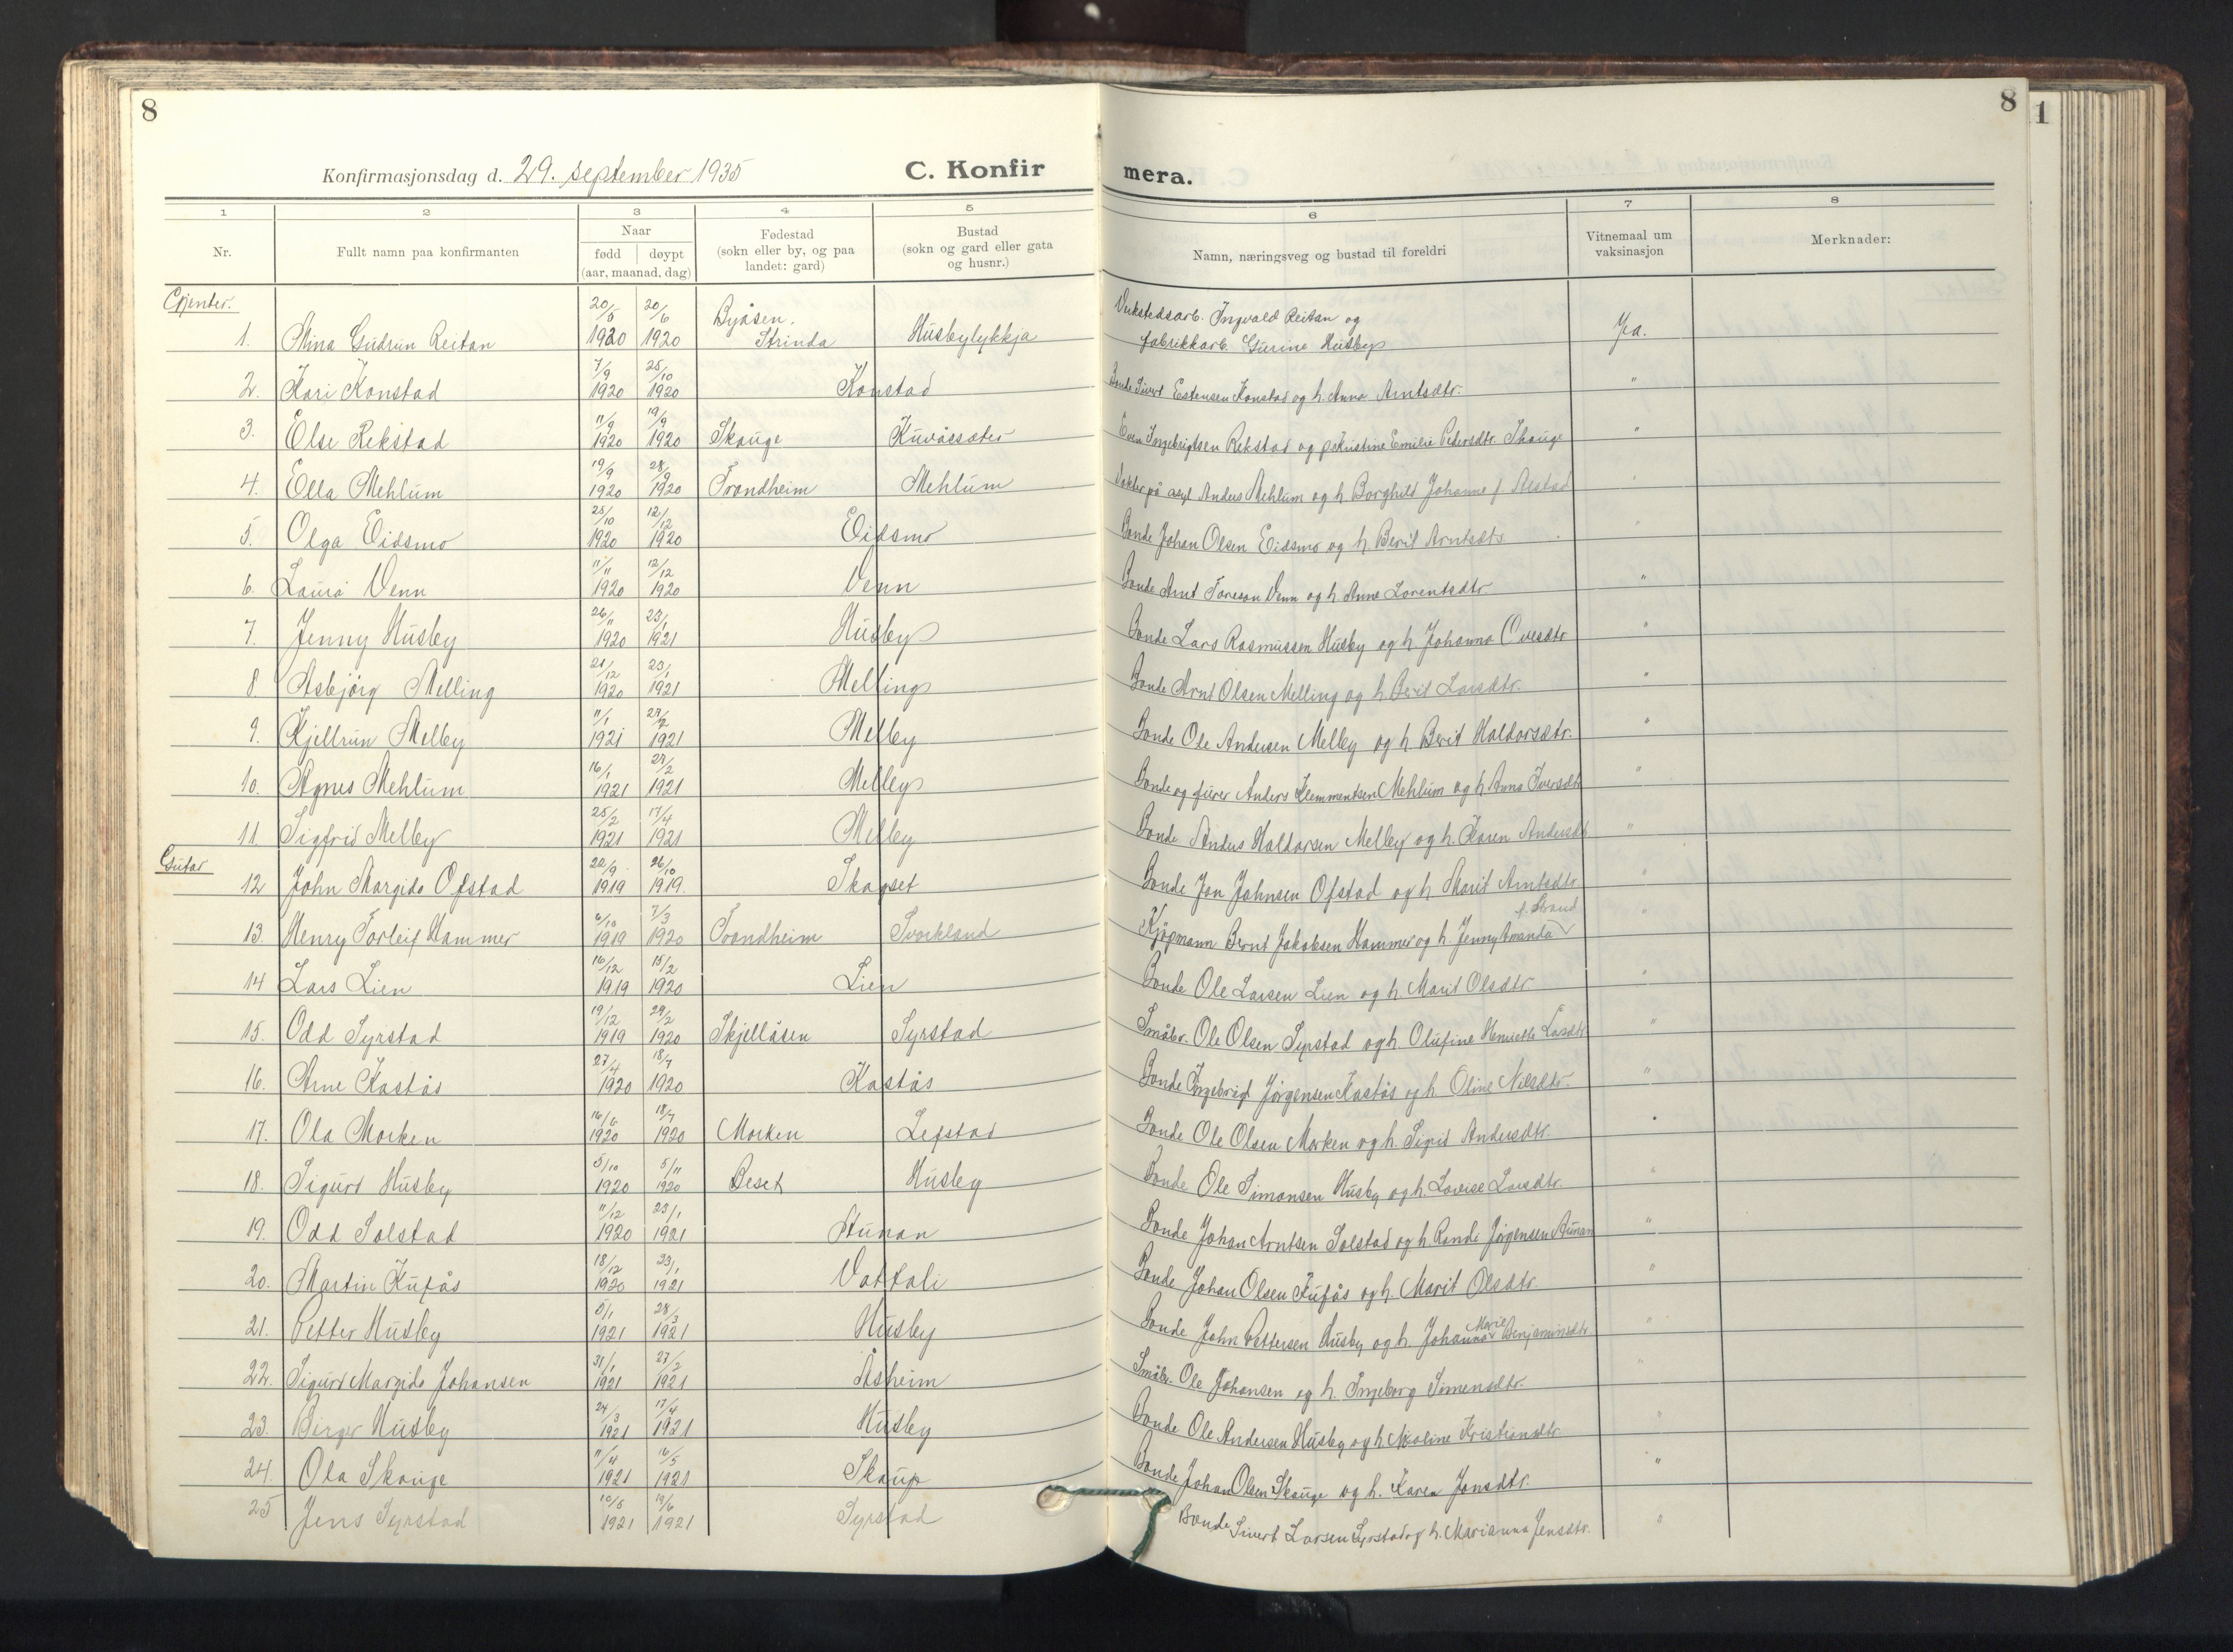 8
8
1
Konfirmasjonsdag d. 29. september 1935
C. Konfirmera.
1 2 3 4 5 6 7 8
Nr.
Fullt namn paa konfirmanten
Naar
født
døypt
(aar, maanad, dag)
Fødestad
(sokn eller by, og paa
landet: gard)
Bustad
(sokn og gard eller gata
og husnr.)
Namn, næringsveg og bustad til foreldri
Vitnemaal um
vaksinasjon
Merknader:
Gjenter.
1. Mina Gudrun Reitan 20/5 1920 20/6 1920 Byåsen, Strinda Husbylykkja Verkstedsarb. Ingvald Reitan og
fabrikkarb. Gurine Husby Ja.
2. Kari Konstad 7/9 1920 25/10 1920 Konstad Bonde Sivert Estensen Konstad og h. Anna Arntsdtr. "
3. Else Rekstad 11/9 1920 19/9 1920 Skauge Kuvåssæter Even Ingebrigtsen Rekstad og Kristine Emilie Pedersdtr. Skauge "
4. Ella Mehlum 19/9 1920 28/9 1920 Trondheim Mehlum Vokter på asyl Anders Mehlum og h. Borghild Johanne f. Alstad "
5. Olga Eidsmo 25/10 1920 12/12 1920 Eidsmo Bonde Johan Olsen Eidsmo og h. Berit Arntsdtr. "
6. Laura Venn 11/11 1920 12/12 1920 Venn Bonde Arnt Toreson Venn og h. Anne Lorentsdtr. "
7. Jenny Husby 26/11 1920 23/1 1921 Husby Bonde Lars Rasmussen Husby og h. Johanna Ovesdtr "
8. Asbjörg Melling 21/12 1920 23/1 1921 Melling Bonde Arnt Olsen Melling og h. Berit Larsdtr. "
9. Kjellrun Melby 11/1 1921 27/2 1921 Melby Bonde Ole Andersen Melby og h. Berit Haldorsdtr. "
10. Agnes Mehlum 16/1 1921 27/2 1921 Melby Bonde og Anders Klemmentsen Mehlum og h. Anna Iversdtr "
11. Sigfrid Melby 25/2 1921 17/4 1921 Melby Bonde Anders Haldorsen Melby og h. Karen Andersdtr "
Gutar
12 John Margido Ofstad 22/9 1919 26/10 1919. Skogset Bonde Jon Johnsen Ofstad og h. Marit Arntsdtr "
13. Henry Torleif Hammer 6/10 1919 7/3 1920 Trondheim Svorkland Kjöpmann Bernt Jakobsen Hammer og h. Jenny Amanda f. Strand "
14 Lars Lien 16/12 1919 15/2 1920 Lien Bonde Ole Larsen Lien og h. Marit Olsdtr "
15. Odd Syrstad 19/12 1919 29/2 1920 Skjellåsen Syrstad Småbr. Ole Olsen Syrstad og h. Olufine Henriette Larsdtr "
16. Arne Kastås 27/4 1920 18/7 1920 Kastås Bonde Ingebrigt Jörgensen Kastås og h. Oline Nilsdtr. "
17. Ola Morken 16/6 1920 18/7 1920 Morken Lefstad Bonde Ole Olsen Morken og h. Sigrid Andersdtr. "
18. Sigurd Husby 5/10 1920 5/11 1920 Beset Husby Bonde Ole Simonsen Husby og h. Lovise Larsdtr. "
19. Odd Solstad 11/12 1920 23/1 1921 Aunan Bonde Johan Arntsen Solstad og h. Randi Jörgensen Aunan "
20. Martin Kufås 18/12 1920 23/1 1921 Vattali Bonde Johan Olsen Kufås og h. Marit Olsdtr. "
21. Petter Husby 5/1 1921 28/3 1921 Husby Bonde John Pettersen Husby og h. Johanna Marie Benjaminsdtr "
22. Sigurd Margido Johansen 31/1 1921 27/2 1921 Åsheim Småbr. Ole Johansen og h. Ingeborg Simensdtr. "
23. Birger Husby 24/3 1921 17/4 1921 Husby Bonde Ole Andersen Husby og h. Nikoline Kristiansdtr "
24. Ola Skauge 11/4 1921 16/5 1921 Skaug Bonde Johan Olsen Skauge og h. Karen Jonsdtr. "
25 Jens Syrstad 10/5 1921 19/6 1921 Syrstad Bonde Sivert Larsen Syrstad og h. Marianna Jensdtr. "